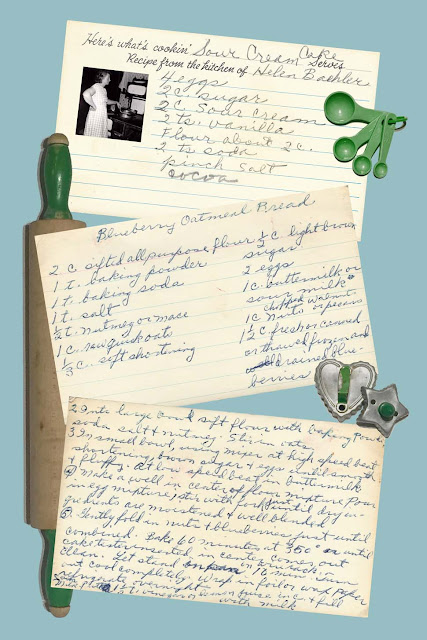 Here's what's cookin' Sour Cream Cake
Serves
Recipe from the kitchen of Helen Baehler
4 eggs
2 C. sugar
2 C. Sour Cream
2 ts. vanilla
Flour about 2 c.
2 ts soda
pinch salt
cocoa
Blueberry Oatmeal Bread
2 c. sifted all purpose flour
1 t. baking powder
1 t. baking soda
1 t. salt
1/2 t. nutmeg or mace
1 c. raw quick oats
1/3 c. soft shortening
1/2 c. light brown
sugar
2 eggs
1 c. buttermilk or
sour milk
chopped walnut
1 c Nuts or pecans
1 1/2 c. fresh or canned
or thawed frozen and
drained blue-
berries
2 Into large bowl sift flour with baking powd.
soda salt & nutmeg. Stir in oats.
3 In small bowl, using mixer at high speed beat
shortening, brown sugar & eggs until smooth
& fluffy. At low speed beat in buttermilk
4 Make a well in center of flour mixture pour
in egg mixture, stir with fork until dry in-
gredients are moistened & well blended
5 Gently fold in nuts & blueberries just until
combined. Bake 60 minutes at 350° or until
cake tester inserted in center comes out
clean. Let stand in pan 10 min. Turn
out cool completely. Wrap in foil or wax paper
refrigerate overnight
vinegar or lemon juice in c. & fill
with milk